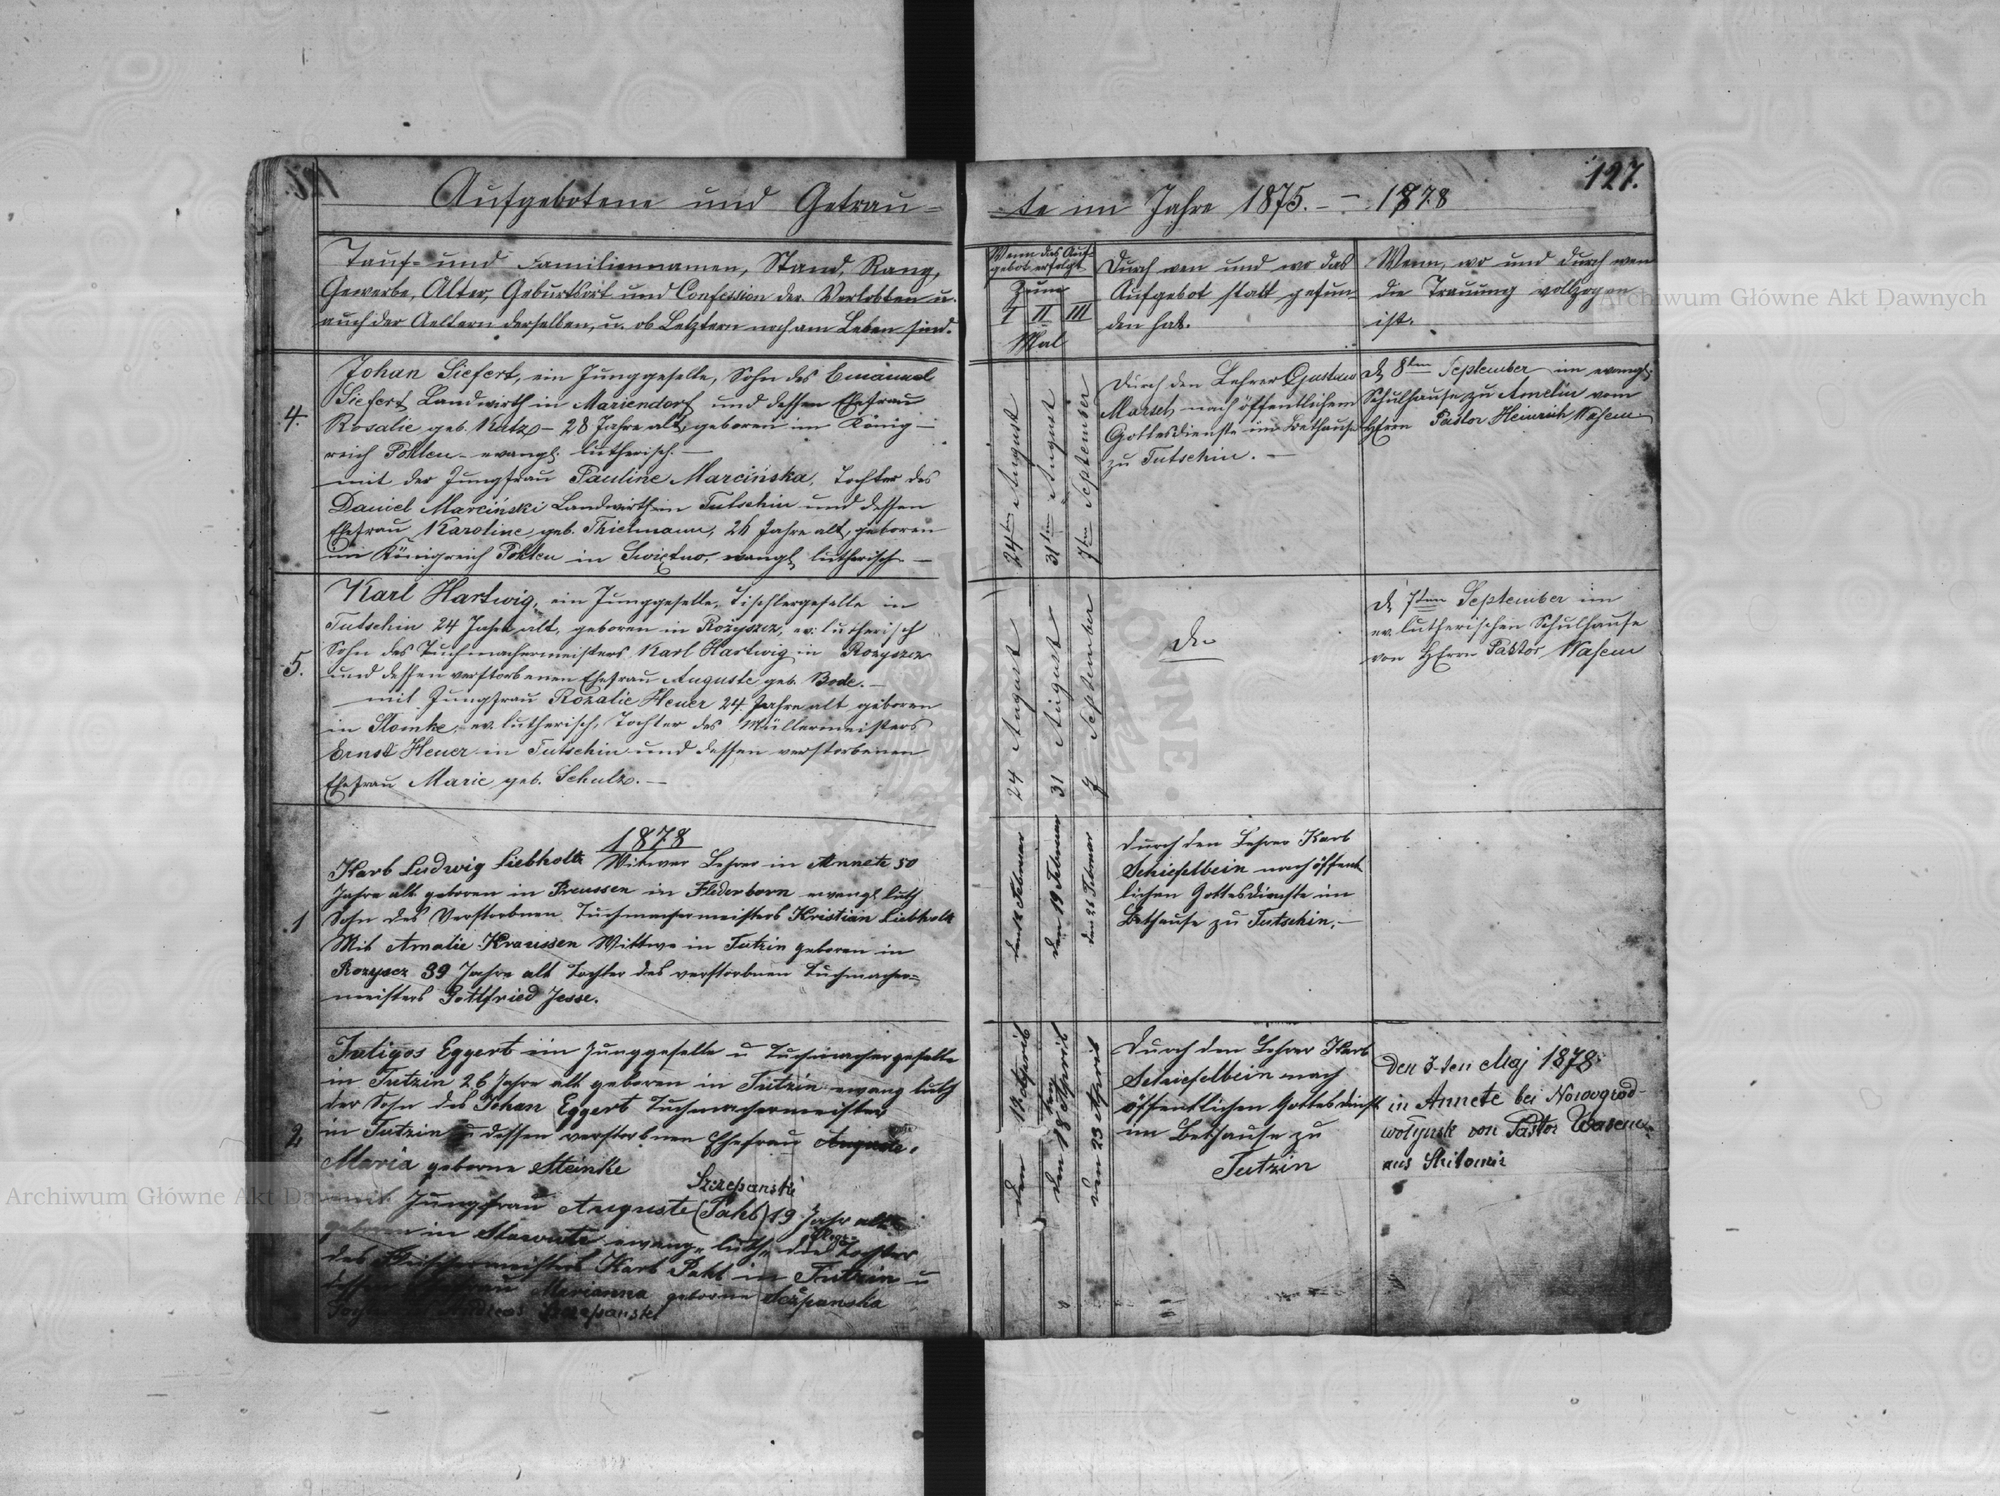 Aufgebotene und Getrau-
te im Jahre 1875. — 1878
127.
Tauf- und Familiennamen, Stand, Rang,
Gewerbe, Alter, Geburtsort und Confession der Verlobten u.
auch der Aeltern derselben, u. ob Letztern noch am Leben sind.
Wann das Auf-
gebot erfolgt
Zum
I II III
Mal
Durch wen und wo das
Aufgebot statt gefun-
den hat.
Wann, wo und durch wen
die Trauung vollzogen
ist.
4.
Johan Siefert, ein Junggeselle, Sohn des Emanuel
Siefert Landwirth in Mariendorf und dessen Ehefrau
Rosalie geb. Katz – 28 Jahre alt, geboren im König-
reich Pohlen – evangl. lutherisch. —
mit der Jungfrau Pauline Marcińska, Tochter des
Daniel Marciński Landwirth in Tutschin und dessen
Ehefrau Karoline, geb. Thielmann, 26 Jahre alt, geboren
im Königreich Pohlen in Swiętno, evangl. lutherisch —
24ten August
31ten August
7ten September
Durch den Lehrer Gustav
nach öffentlichem
Gottesdienste im Bethause
zu Tutschin. —
d. 8ten September im evangl.
Schulhause zu Amelin vom
Herrn Pastor Heinrich Wasem
5.
Karl Hartwig, ein Junggeselle, Tischlergeselle in
Tutschin 24 Jahre alt, geboren in Rożyszcz, ev. lutherisch
Sohn des Tuchmachermeisters Karl Hartwig in Rozyszcz
und dessen verstorbenen Ehefrau Auguste geb. Bode. —
mit Jungfrau Rozalie Heuer 24 Jahre alt geboren
in Slomke, ev. lutherisch, Tochter des Müllermeisters
Ernst Heuer in Tutschin und dessen verstorbenen
Ehefrau Marie geb. Schulz. —
24 August
31 August
7 September
dto
d. 7ten September im
ev. lutherischen Schulhause
von Herrn Pastor Wasem
1878
1
Karl Ludwig Liebholtz Witwer Lehrer in Annete 50
Jahre alt geboren in Preussen in Flederborn evangl. luth
Sohn des Verstorbnen Tuchmachermeisters Kristian Liebholtz
Mit Amalie Kraussen Wittwe in Tutzin geboren in
Rozyscz 39 Jahre alt Tochter des verstorbnen Tuchmacher=
meisters Gottfried Jesse.
den 12 Februar
den 19 Februar
den 26 Februar
Durch den Lehrer Karl
Schiefelbein nach öffent
lichen Gottesdienste im
Bethause zu Tutschin. —
2
Eggert ein Junggeselle u Tuchmachergeselle
in Tutzin 26 Jahre alt geboren in Tutzin evang luth
der Sohn des Johan Eggert Tuchmachermeister
in Tutzin u dessen verstorbnen Ehefrau Auguste
Maria geborne Steinke
Szczepanski
mit Jungfrau Auguste (Pahl) 19 Jahr alt
geboren in Slawute evang. luth. die Tochter
des Karl Pahl in Tutzin u
dessen Ehefrau Marianna geborne Sczepanska
Szczepanski
den April
den 18 April
den 23 April
Durch den Lehrer Karl
Schiefelbein nach
öffentlichen Gottesdienst
im Bethause zu
Tutzin
den 3-ten Maj 1878
in Annete bei Nowogrod-
wolynsk von Pastor Wasem
aus Shitomir
Archiwum Główne Akt Dawnych
Archiwum Główne Akt Dawnych